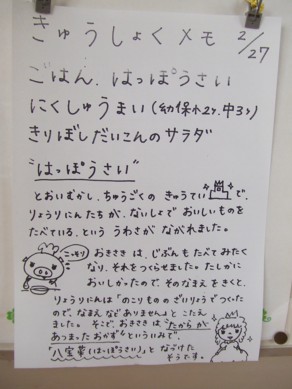 きゅうしょくメモ 2/27
ごはん、はっぽうさい
にくしゅうまい(幼保小2ヶ、中3ヶ)
きりぼしだいこんのサラダ
"はっぽうさい"
とおいむかし、ちゅうごくの きゅうていで、
りょうりにんたちが、ないしょで おいしいものを
たべている、という うわさが ながれました。
こっそり
おきさき は、じぶんも たべてみたく
なり、それをつくらせました。たしかに
おいしかったので、そのなまえ をきくと、
りょうりにんは「のこりものの ざいりょうで つくった
ので、なまえ など ありません」と こたえ
ました。そこで、おきさきは "たからが
あつまったおかず"といういみで、
「八宝菜(はっぽうさい)」と なづけた
そうです。